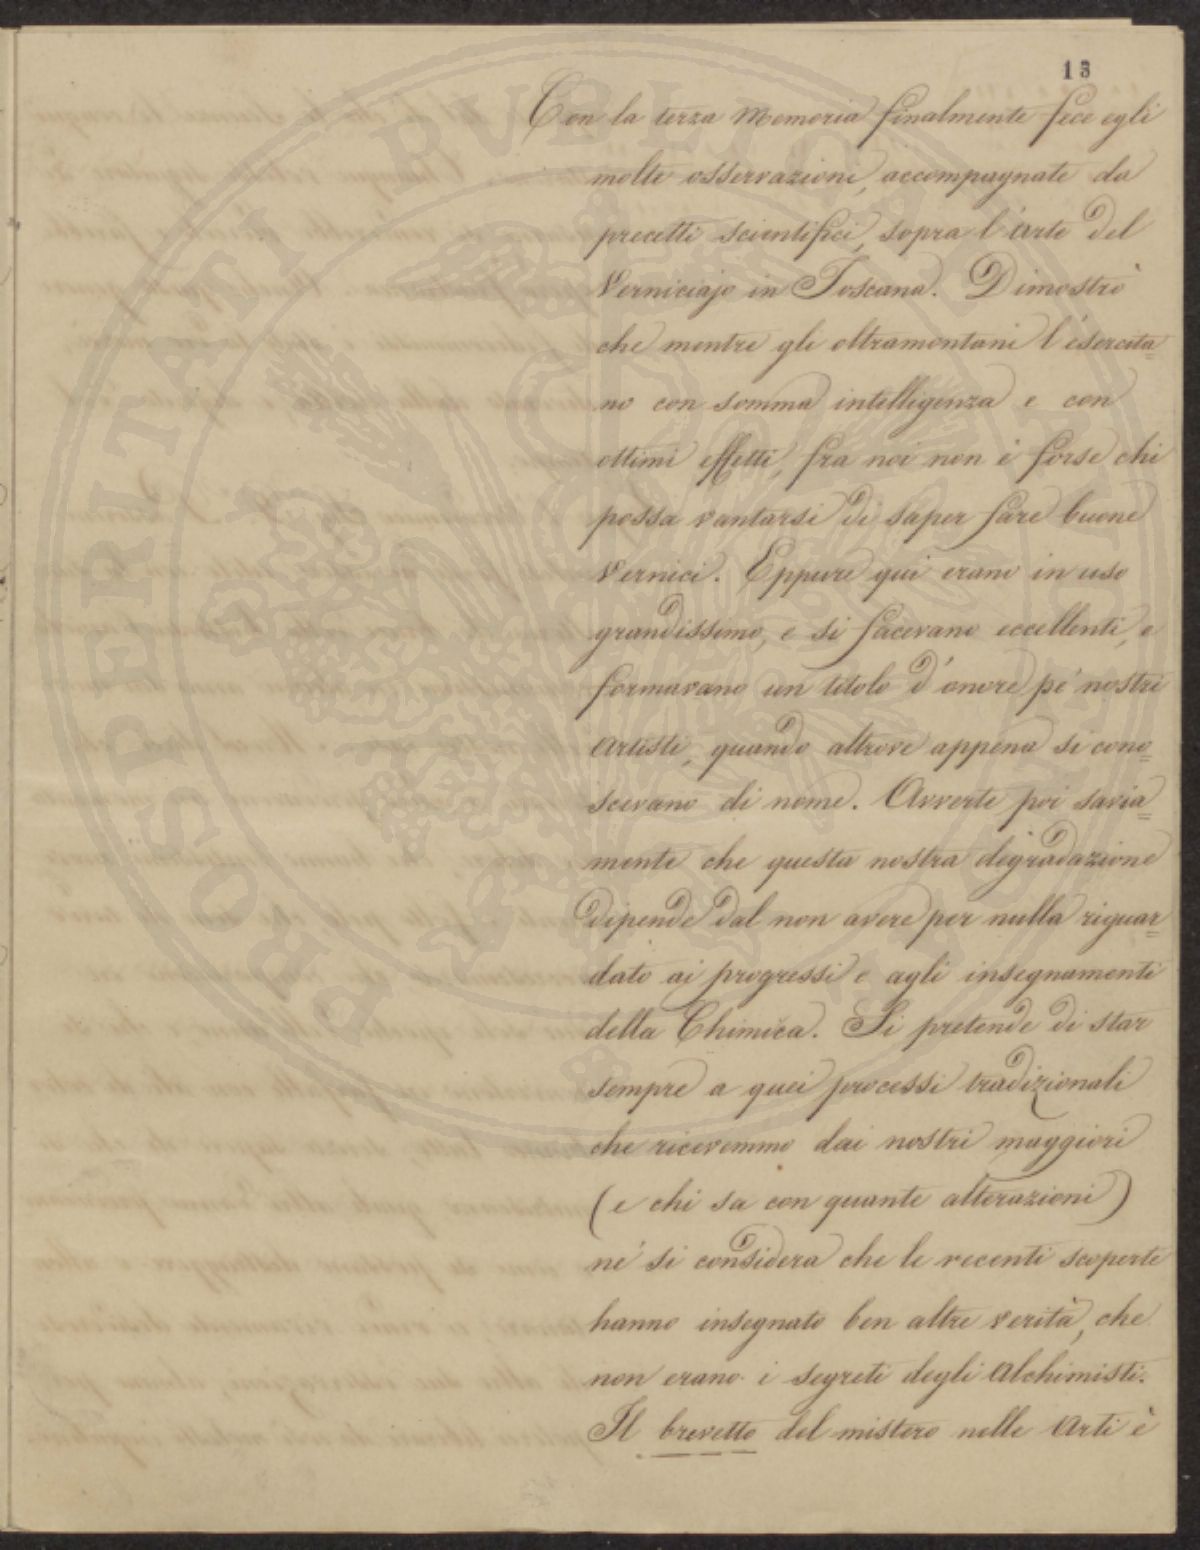 13
Con la terza Memoria finalmente fece egli
molte osservazioni, accompagnate da
precetti scientifici, sopra l'arte del
Verniciajo in Toscana. Dimostrò
che mentre gli oltramontani l'esercita=
no con somma intelligenza e con
ottimi effetti, fra noi non è forse chi
possa vantarsi di saper fare buone
Vernici. Eppure qui erano in uso
grandissimo, e si facevano eccellenti, e
formavano un titolo d'onore pe' nostri
Artisti, quando altrove appena si cono=
scevano di nome. Avverte poi savia=
mente che questa nostra degradazione
dipende dal non avere per nulla riguar=
dato ai progressi e agli insegnamenti
della Chimica. Si pretende di star
sempre a quei processi tradizionali
che ricevemmo dai nostri maggiori
(e chi sa con quante alterazioni)
nè si considera che le recenti scoperte
hanno insegnato ben altre verità, che
non erano i segreti degli Alchimisti.
Il brevetto del mistero nelle Arti è
PROSPERITATI PVBLICAE